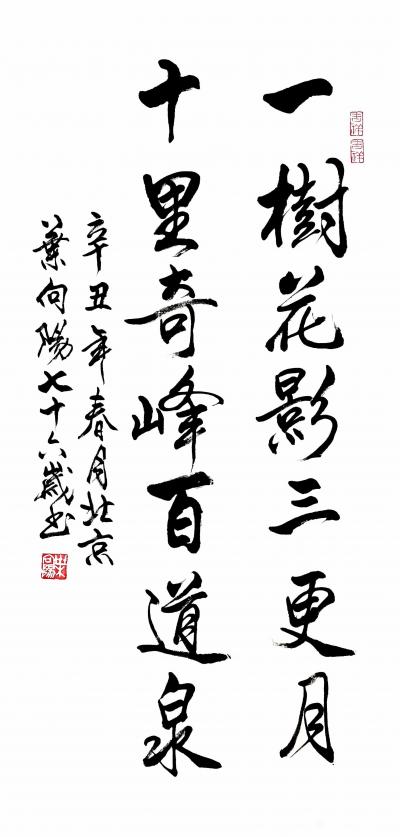 一樹花影三更月
十里奇峰百道泉
辛丑年春月北京
葉向陽七十六歲书